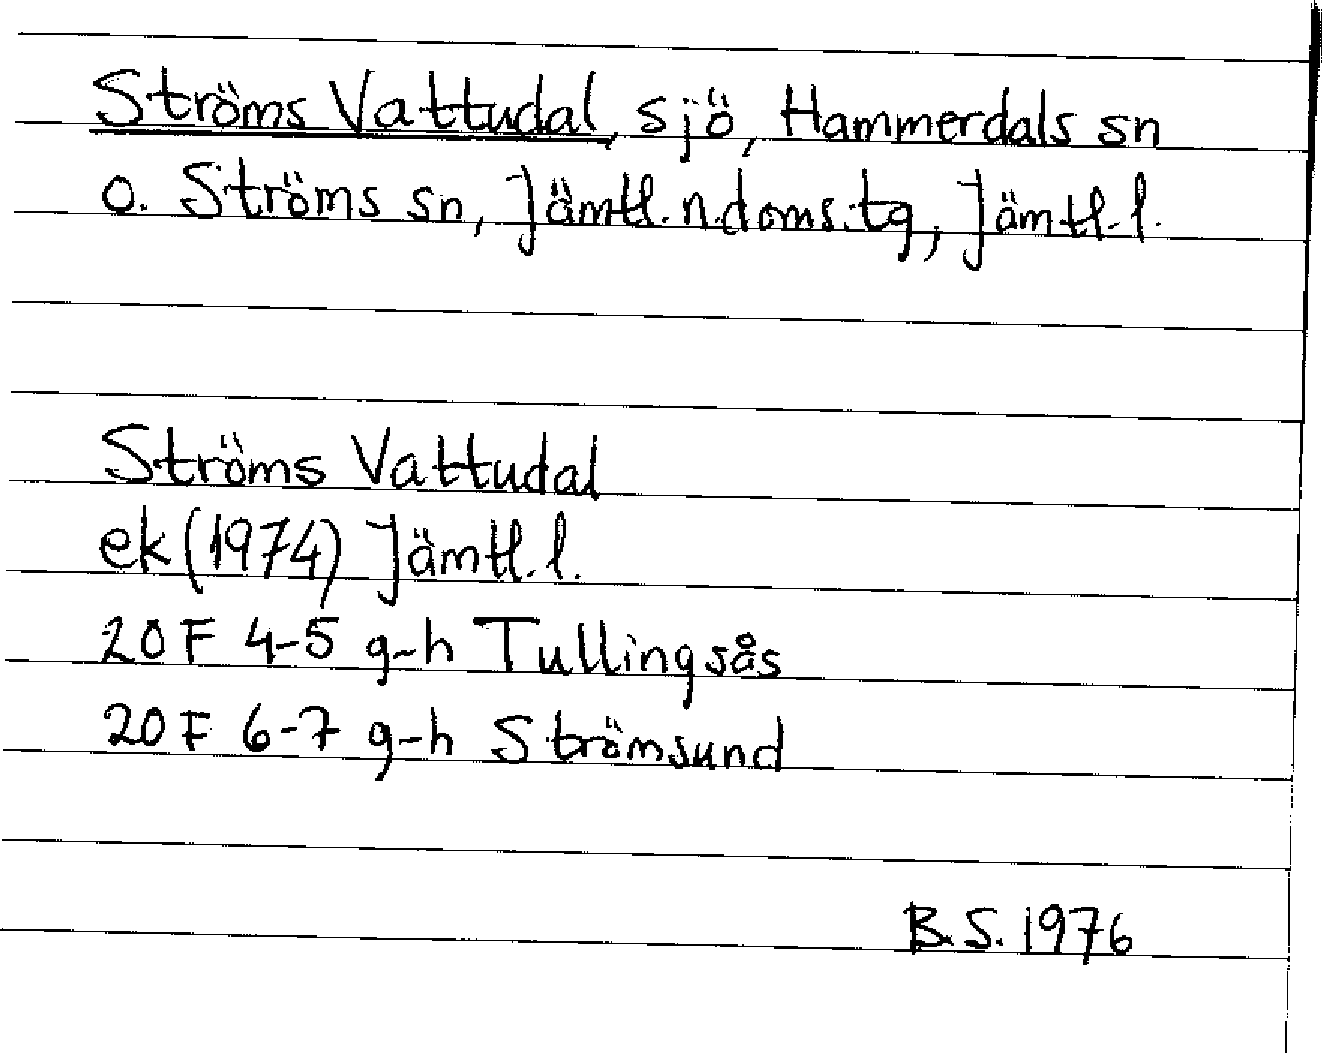 Ströms Vattudal, sjö, Hammerdals sn
o. Ströms sn, Jämtl.n.doms.tg, Jämtl.l.
Ströms Vattudal
ek (1974) Jämtl.l.
20 F 4-5 g-h Tullingsås
20 F 6-7 g-h Strömsund
B.S. 1976